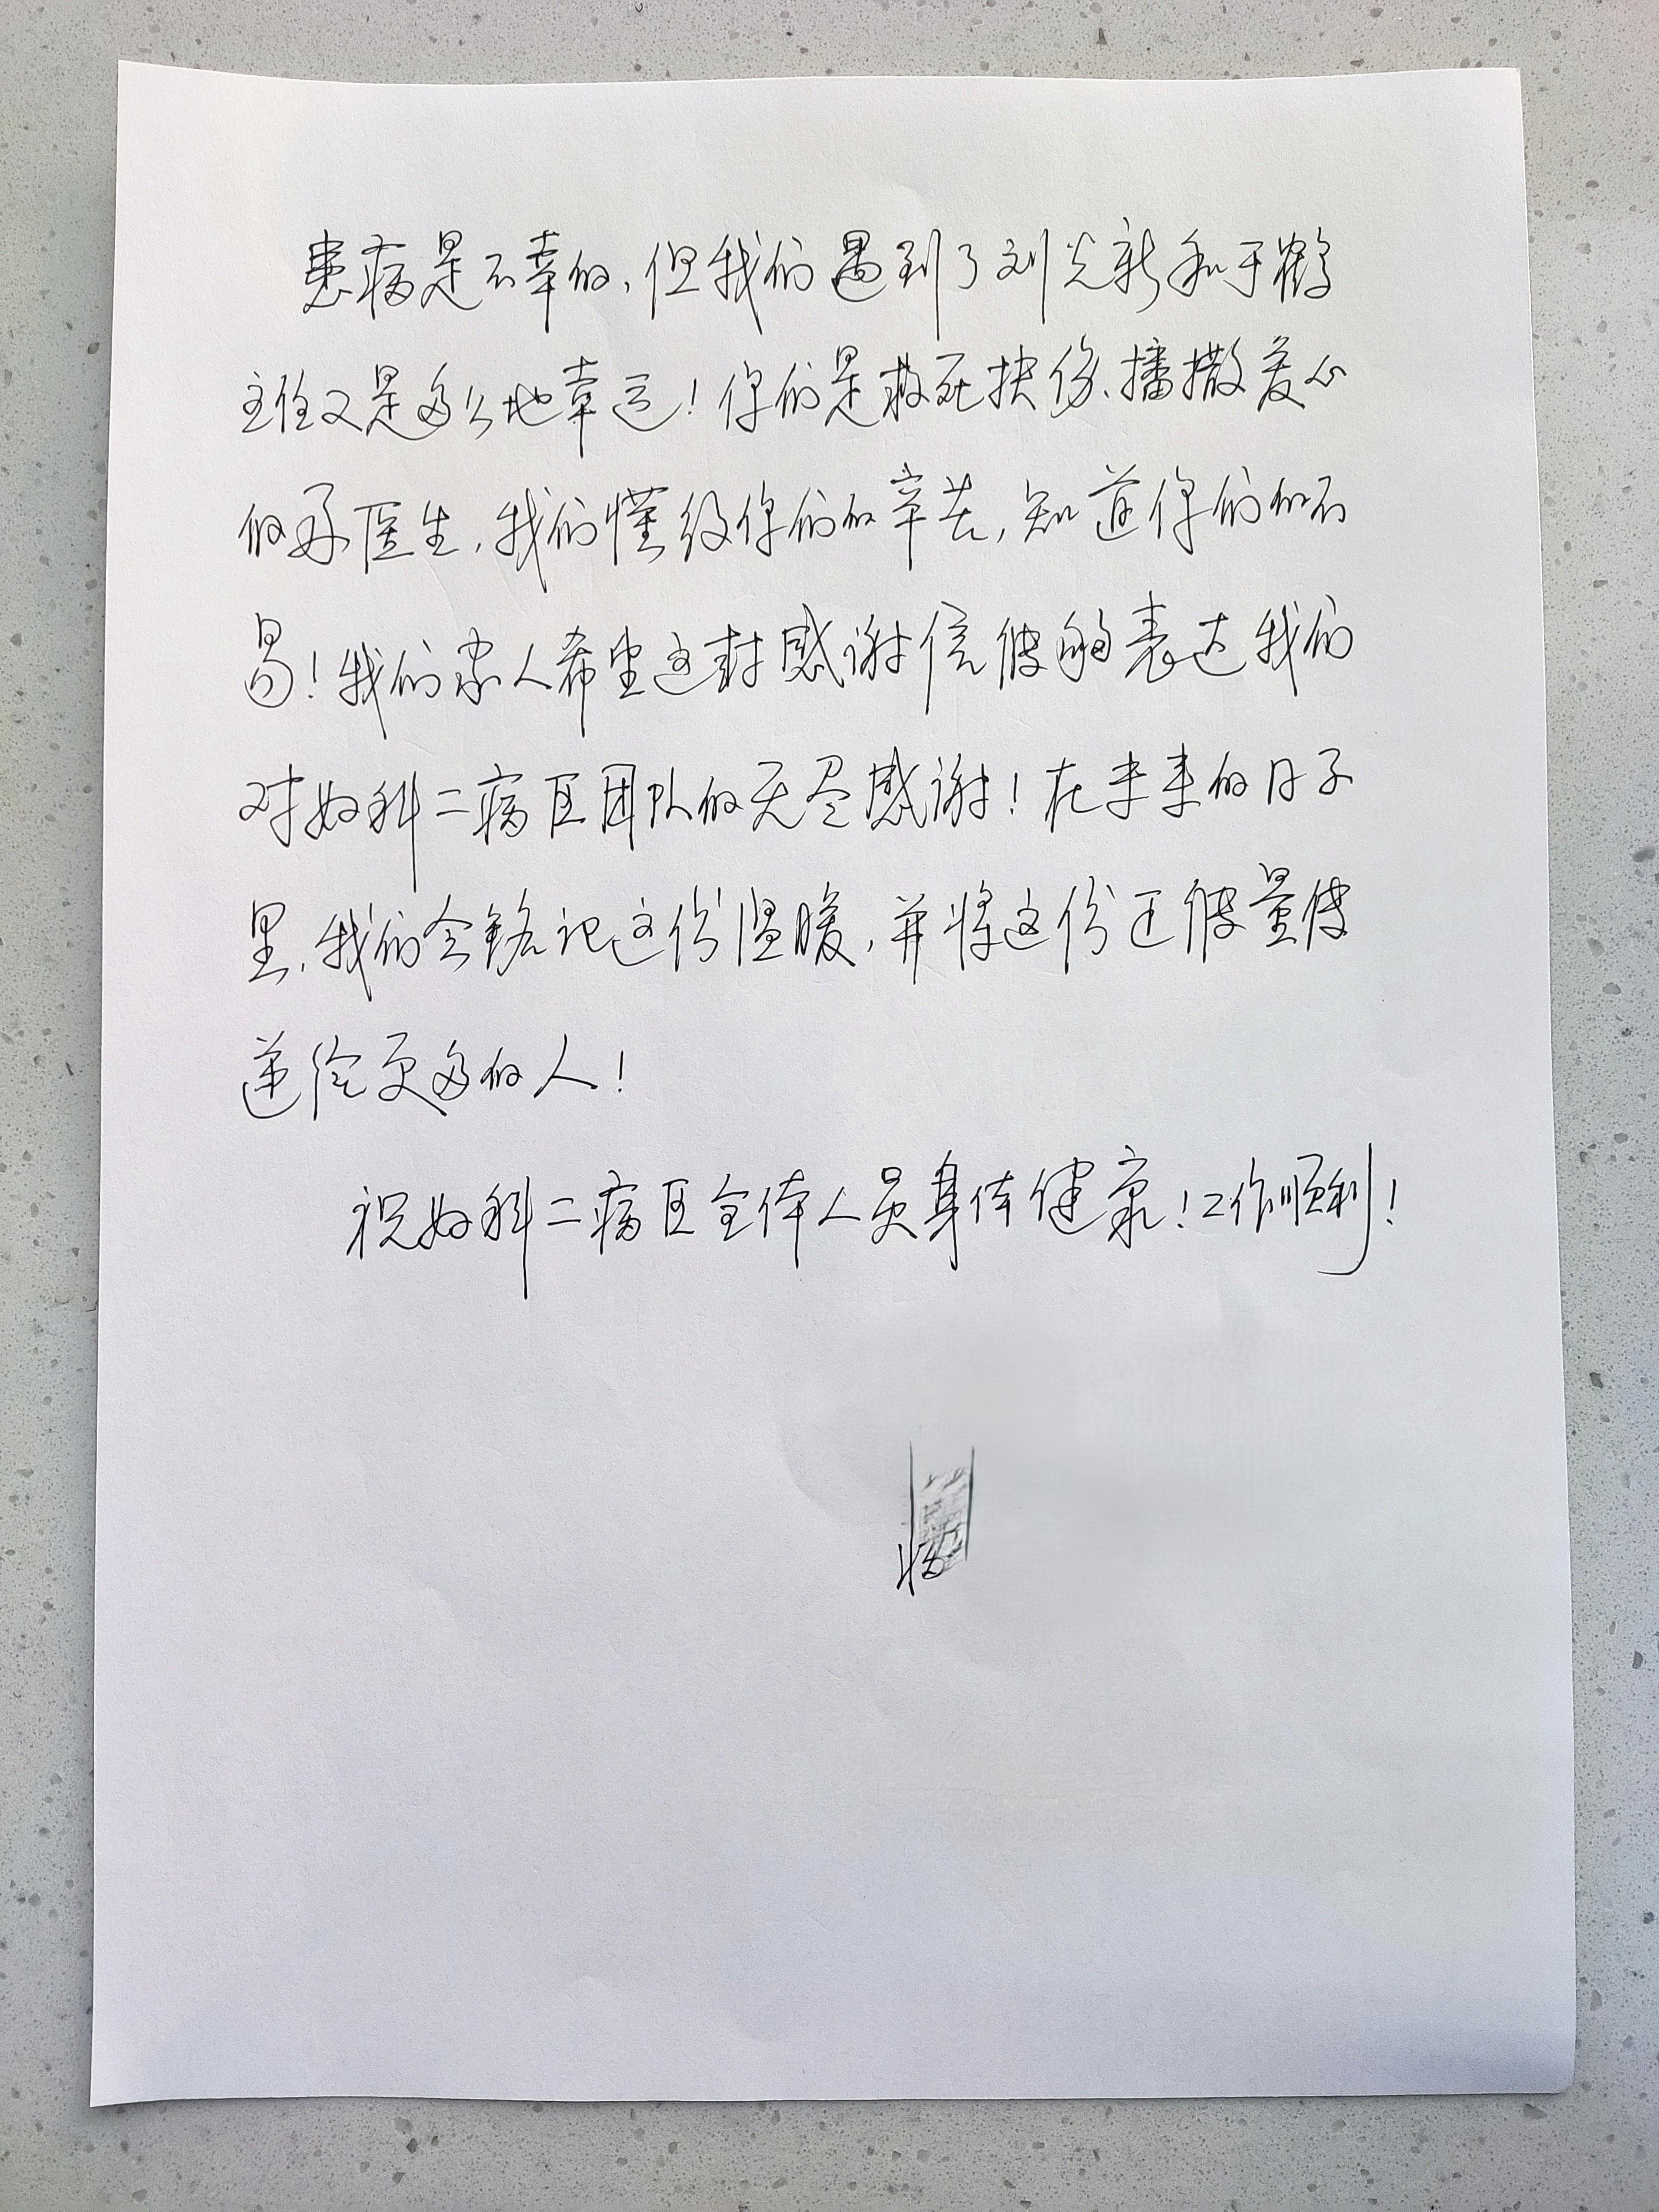 患病是不幸的,但我们遇到了刘光新和于鹤
主任又是多么地幸运!你们是救死扶伤、播撒爱心
的好医生,我们懂得你们的辛苦,知道你们的不
易!我们家人希望这封感谢信能够表达我们
对妇科二病区团队的无尽感谢!在未来的日子
里,我们会铭记这份温暖,并将这份正能量传
递给更多的人!
祝妇科二病区全体人员身体健康!工作顺利!